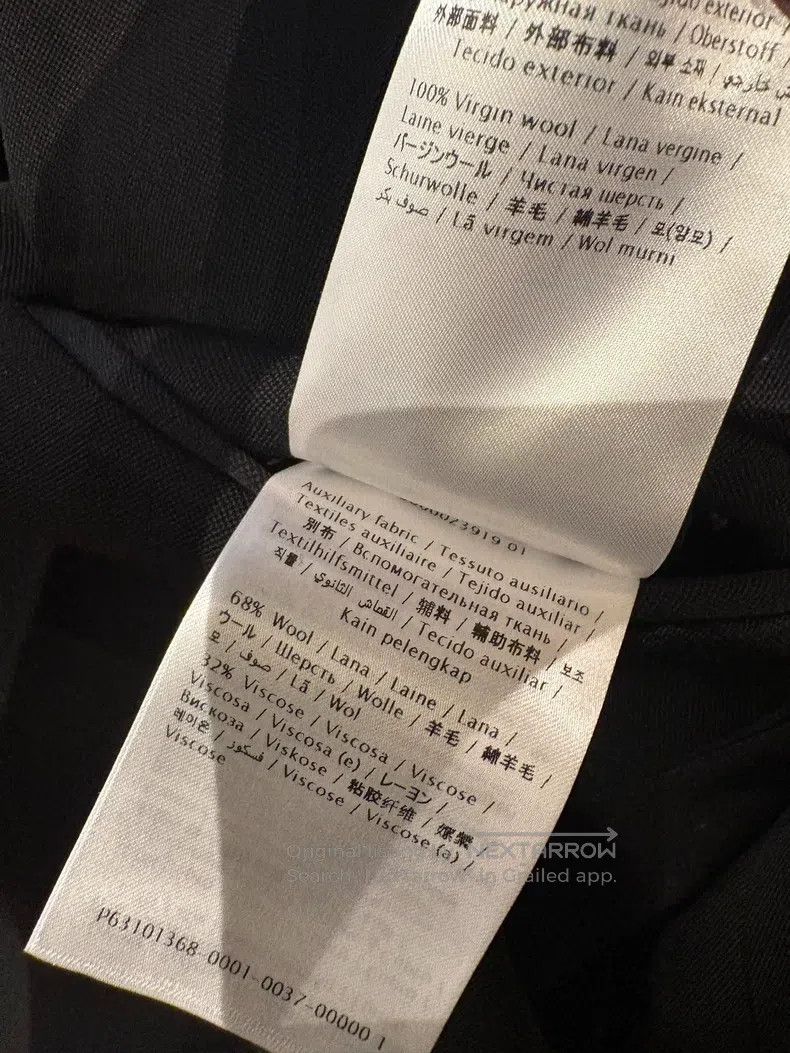 ткань / Tejido exterior /
外部面料 / 外部布料 / Oberstoff /
외부 소재 /
Tecido exterior / Kain eksternal
100% Virgin wool / Lana vergine /
Laine vierge / Lana virgen /
バージンウール / Чистая шерсть /
Schurwolle / 羊毛 / 綿羊毛 / 모(양모) /
صوف بكر / Lã virgem / Wol murni
00023919 01
Auxiliary fabric / Tessuto ausiliario /
Textiles auxiliaire / Tejido auxiliar /
別布 / Вспомогательная ткань /
Textilhilfsmittel / 辅料 / 輔助布料 / 보조
직물 / القماش الثانوي / Tecido auxiliar /
Kain pelengkap
68% Wool / Lana / Laine / Lana /
ウール / Шерсть / Wolle / 羊毛 / 綿羊毛 /
모 / صوف / Lã / Wol
32% Viscose / Viscosa / Viscose /
Viscosa / Viscosa (e) / レーヨン /
Вискоза / Viskose / 粘胶纤维 / 嫘縈
레이온 / فسكوز / Viscose / Viscose (a) /
Viscose
NEXTARROW
Search in Grailed app.
P63101368-0001-0037-00000 1